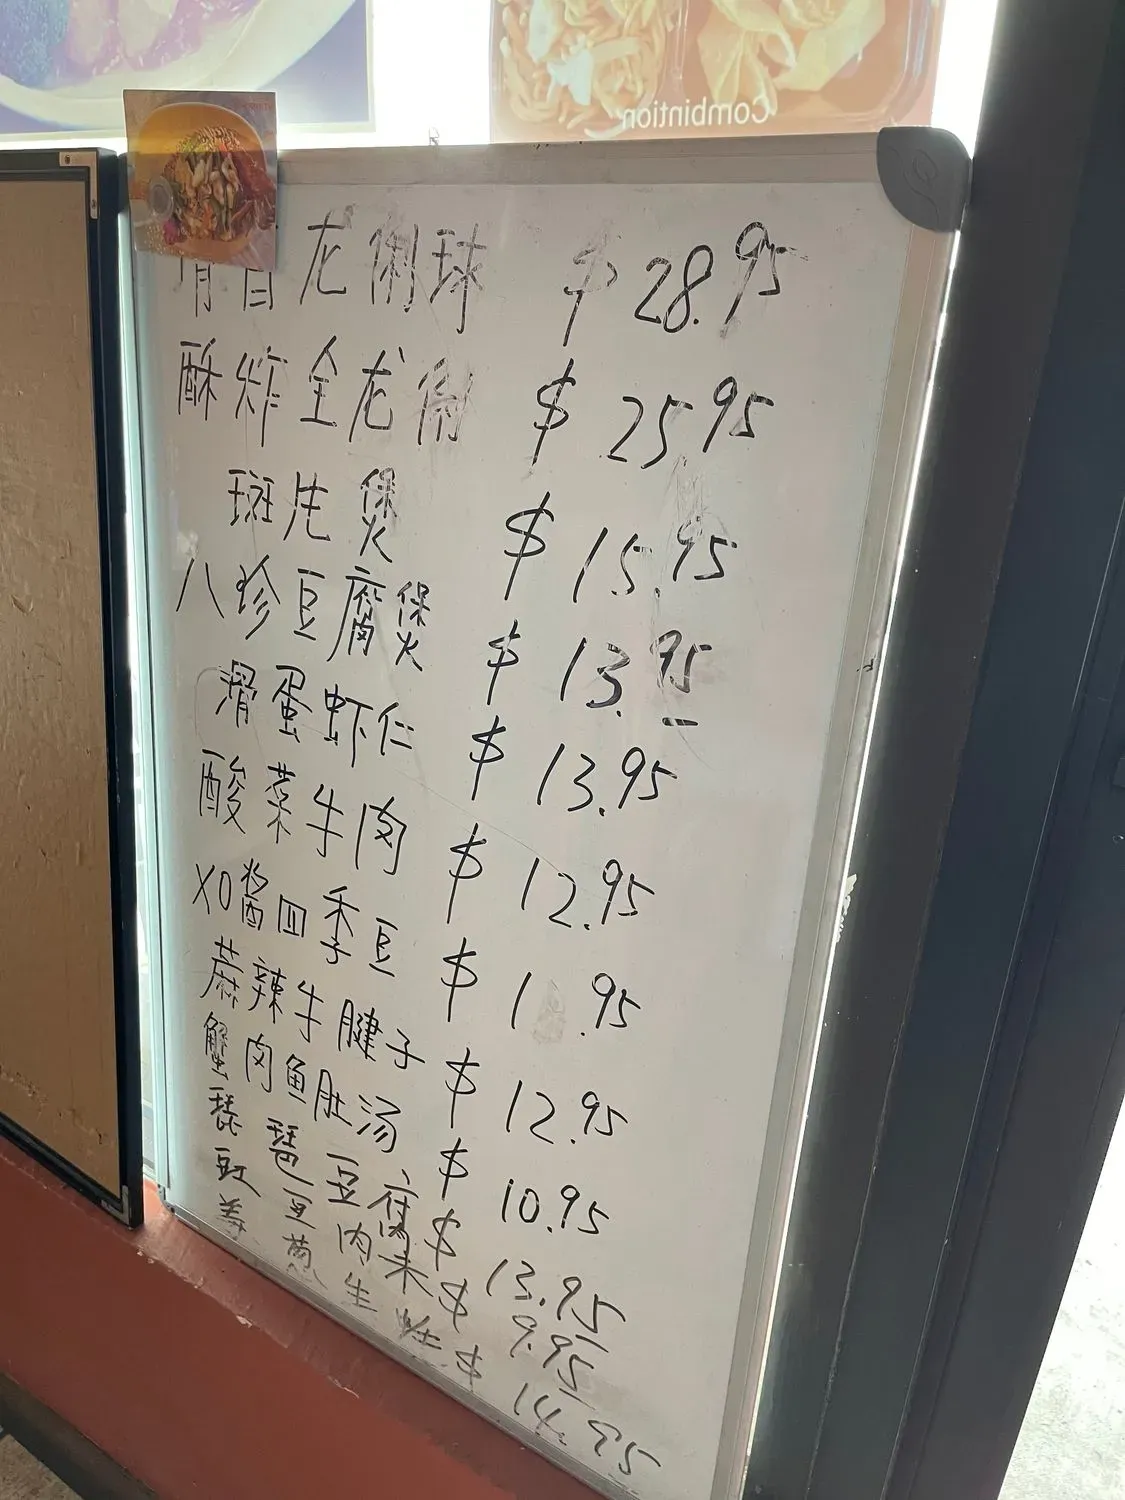 Combintion
龙俐球 $28.95
酥炸全龙俐 $25.95
斑先煲 $15.95
八珍豆腐煲 $13.95
滑蛋虾仁 $13.95
酸菜牛肉 $12.95
XO酱四季豆 $1 .95
麻辣牛腱子 $12.95
蟹肉鱼肚汤 $10.95
琵琶豆腐 $13.95
豇豆肉末 $9.95
姜葱生蚝 $14.95